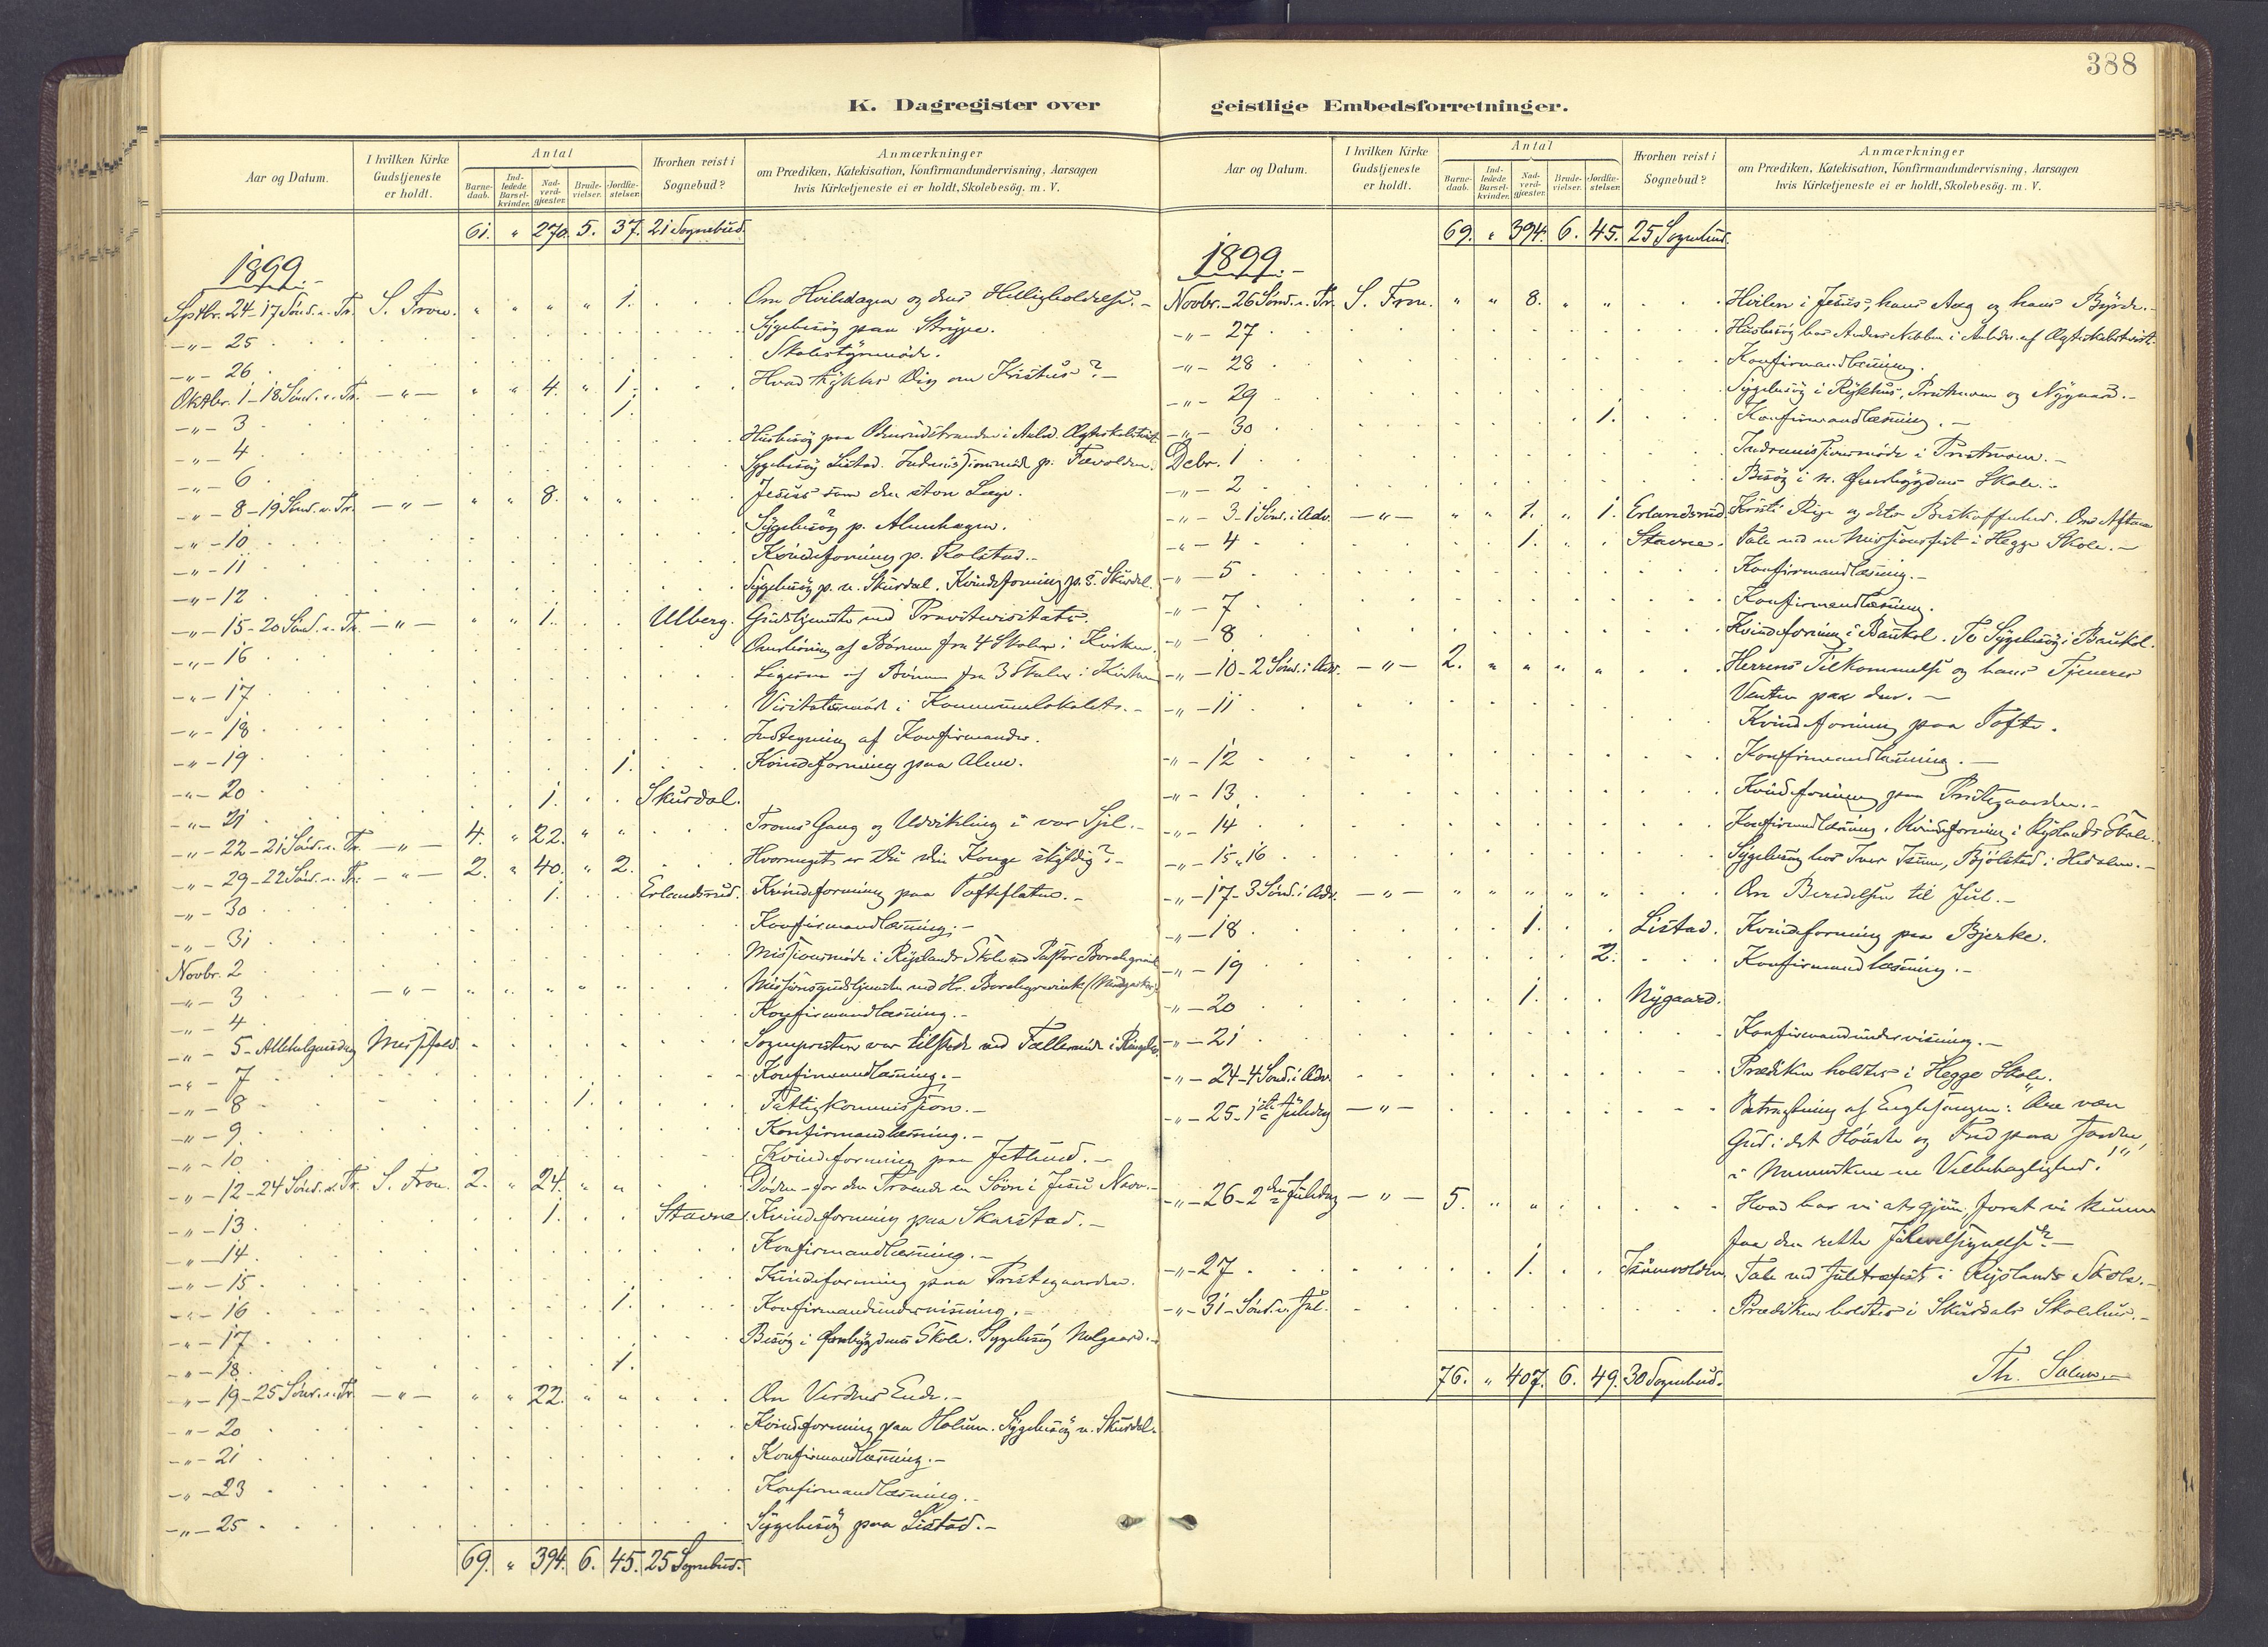 388
K. Dagregister over
Aar og Datum. I hvilken Kirke Gudstjeneste er holdt. Antal Barnedaab. Indledede Barselkvinder. Nadverdgjæster. Brudevielser. Jordfæstelser. Hvorhen reist i Sognebud? Anmærkninger om Prædiken, Katekisation, Konfirmandundervisning, Aarsagen hvis Kirketjeneste ei er holdt, Skolebesög. m. V.
61. " 270. 5. 37. 21 Sognebud.
1899.-
Sptbr. 24-17 Sönd. e. Tr. S. Fron. " " " " 1. Om Hviledagen og dens Helligholdelse.-
-"- 25 Sygebesög paa Strype.
-"- 26 Skolestyremöde.
Oktbr. 1-18 Sönd. e. Tr. -"- " " 4. " 1. Hvad tykkes Dig om Kristus?-
-"- 3 1.
-"- 4 Husbesög paa
-"- 6 Sygebesög Listad.
-"- 8-19 Sönd. e. Tr. -"- " " 8. " " Jesus som den store Læge.
-"- 10 Sygebesög p.
-"- 11 Kvindeforening p. Rolstad.-
-"- 12 Sygebesög p. n. Skurdal. Kvindeforening p. s. Skurdal.
-"- 15-20 Sönd. e. Tr. -"- " " 1. Ulberg. Gudstjeneste ved Provstevisitats.
-"- 16 Overhöring af Börnene fra 4 Skoler i Kirken.
-"- 17 Ligesaa af Börnene fra 3 Skoler i Kirken
-"- 18 Visitatsmöde i Kommunelokalet.-
-"- 19 Indtegning af Konfirmander.
-"- 20 1. Kvindeforening paa Alme.
-"- 21 1. Skurdal.
-"- 22-21 Sönd. e. Tr. -"- 4. " 22. " " Troens Gang og Udvikling i vor Sjel.-
-"- 29-22 Sönd. e. Tr. -"- 2. " 40. " 2. Hvormeget er Du din Konge skyldig?-
-"- 30 1. Erlandsrud. Kvindeforening paa Tofteflaten.-
-"- 31 Konfirmandlæsning.-
Novbr. 2 Missionsmöde i Ryslands Skole ved Pastor Borchgrevink
-"- 3 -"- " " " " " Missionsgudstjeneste ved Hr. Borchgrevink
-"- 4 Konfirmandlæsning.-
-"- 5-Allehelgensdag Messefald. Sognepresten var tilstede ved Fællesmöde i Ringebu.
-"- 7 Konfirmandlæsning.-
-"- 8 1. Fattigkommission.-
-"- 9 Konfirmandlæsning.-
-"- 10 Kvindeforening paa
-"- 12-24 Sönd. e. Tr. S. Fron. 2. " 24. " " Döden - for den Troende en Sövn i Jesu Navn.-
-"- 13 1. Stavne. Kvindeforening paa Skarstad.-
-"- 14 Konfirmandlæsning.-
-"- 15 Kvindeforening paa Prestegaarden.
-"- 16 1. Konfirmandundervisning.-
-"- 17 Besög i Skole. Sygebesög
-"- 18 1.
-"- 19-25 Sönd. e. Tr. -"- " " 22. " " Om Verdens Ende.-
-"- 20 Kvindeforening paa Holum. Sygebesög n. Skurdal.
-"- 21 Konfirmandlæsning.-
-"- 23 Konfirmandlæsning.-
-"- 25 Sygebesög paa Listad.-
69. " 394. 6. 45. 25 Sognebud.
geistlige Embedsforretninger.
Aar og Datum. I hvilken Kirke Gudstjeneste er holdt. Antal Barnedaab. Indledede Barselkvinder. Nadverdgjæster. Brudevielser. Jordfæstelser. Hvorhen reist i Sognebud? Anmærkninger om Prædiken, Katekisation, Konfirmandundervisning, Aarsagen hvis Kirketjeneste ei er holdt, Skolebesög. m. V.
69. " 394. 6. 45. 25 Sognebud.
1899.-
Novbr.-26 Sönd. e. Tr. S. Fron. " " 8. " " Hvilen i Jesus, hans Aag og hans Byrde.-
-"- 27 Husbesög hos Anders
-"- 28 Konfirmandlæsning.
-"- 29 Sygebesög i og Nygaard.-
-"- 30 1. Konfirmandlæsning.-
Debr. 1 Indremissionsmöde i
-"- 2 Besög i n. Skole.-
-"- 3-1 Sönd. i Adv. -"- " " 1. " 1. Erlandsrud. Kristi Rige og dets Beskaffenhed.
-"- 4 1. Stavne. Tale ved en Missionsfest i Hegge Skole.-
-"- 5 Konfirmandlæsning.-
-"- 7 Konfirmandlæsning.
-"- 8 Kvindeforening i Baukol. To Sygebesög i Baukol.
-"- 10-2 Sönd. i Adv. -"- 2. " " " " Herrens Tilkommelse og hans Tjeneres
Venten paa den.-
-"- 11 Kvindeforening paa Tofte.
-"- 12 Konfirmandlæsning.-
-"- 13 Kvindeforening paa Prestegaarden.-
-"- 14 Konfirmandlæsning. Kvindeforening i Ryslands Skole.
-"- 15 " 16 Sygebesög hos Iver Isum, Bjölstad i Hedalen.-
-"- 17-3 Sönd. i Adv. -"- " " " " " Om Beredelsen til Jul.-
-"- 18 1. Listad. Kvindeforening paa Bjerke.
-"- 19 2. Konfirmandlæsning.-
-"- 20 1. Nygaard.
-"- 21 Konfirmandundervisning.-
-"- 24-4 Sönd. i Adv. Prædiken holdtes i Hegge Skole.
-"- 25-1ste Juledag -"- Betragtning af Englesangen: "Ære være
Gud i det Höieste og Fred paa Jorden,
i Menneskene en Velbehagelighed!"
-"- 26-2den Juledag -"- 5. " " Hvad har vi at gjöre, forat vi kunne
faa den rette Julevelsignelse?-
-"- 27 1. Isumvolden. Tale ved Juletræfest i Ryslands Skole.-
-"- 31-Sönd. e. Jul. Prædiken holdtes i Skurdals Skolehus.-
76. " 407. 6. 49. 30 Sognebud.
Th.